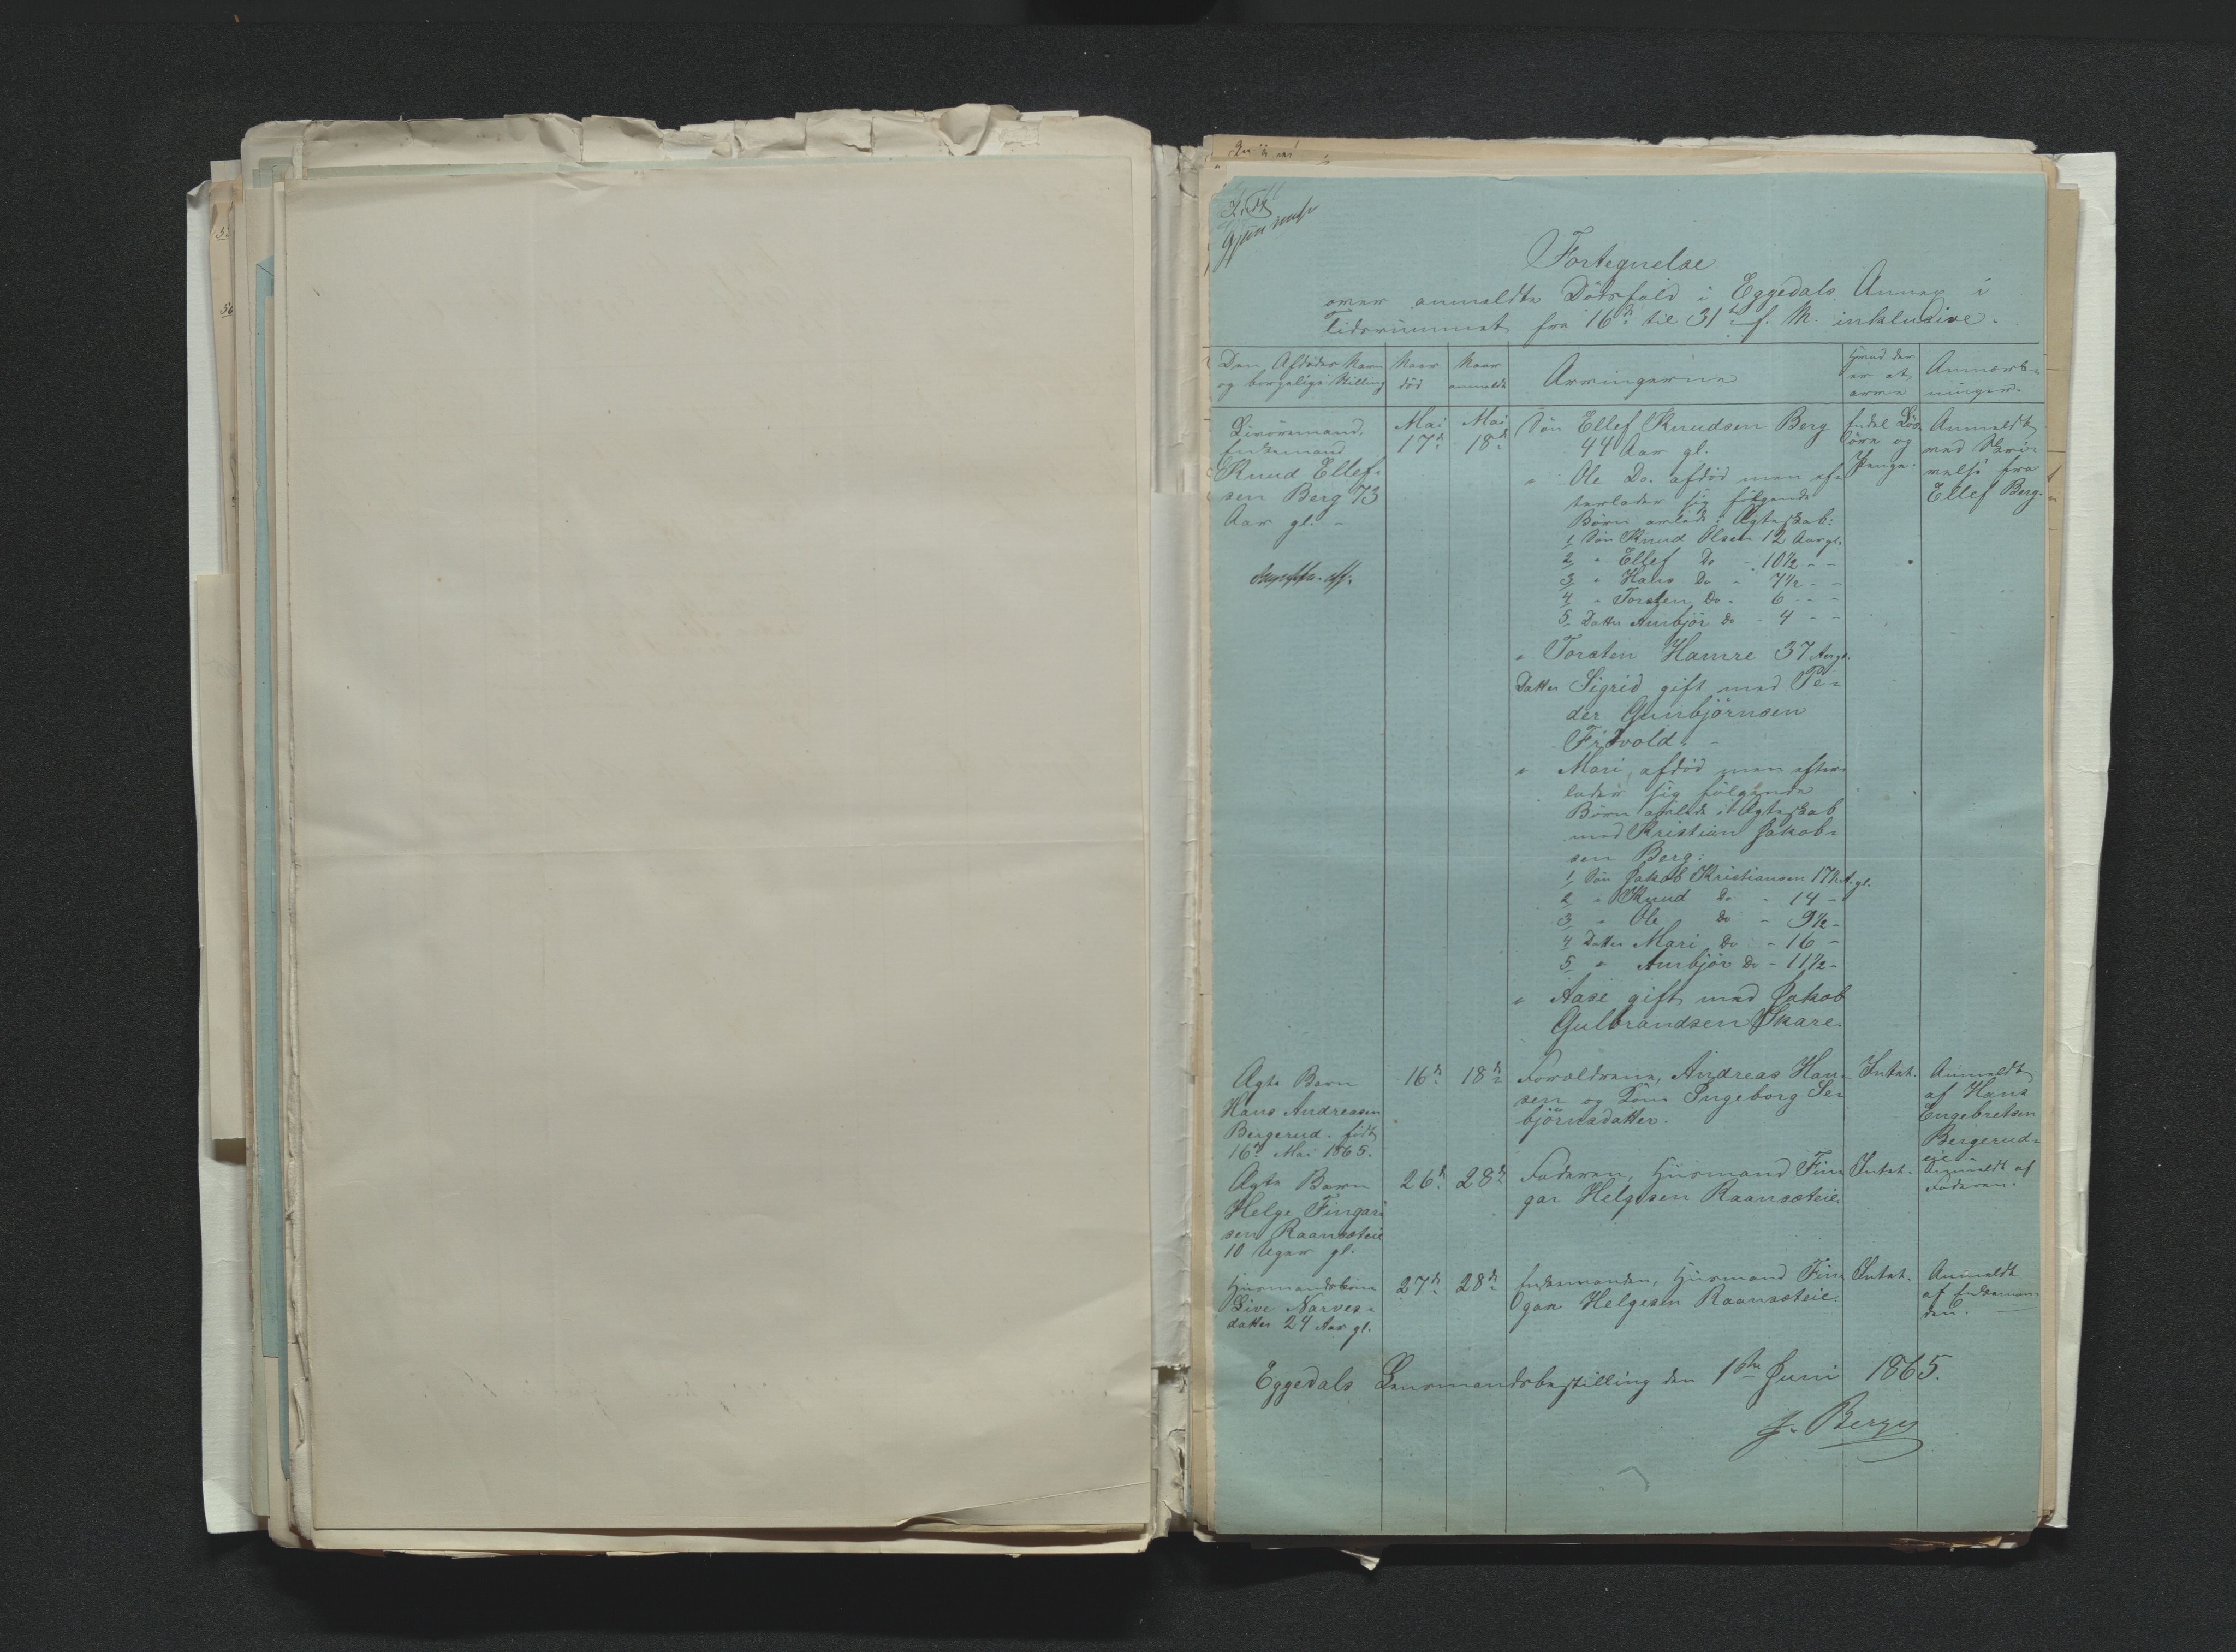 Fortegnelse
over anmeldte Dødsfald i Eggedals Annex i
Tidsrummet fra 16de til 31te f. M. inklusive.
Den Afdødes Navn og borgelige Stilling
Naar død
Naar anmeldt
Arvingerne
Hvad der er at arve
Anmærkninger.
Livøremand,
Enkemand
Knud Ellef-
sen Berg 73
Aar gl. -
Mai
17de
Mai
18de
Søn Ellef Knudsen Berg
44 Aar gl.
" Ole Do. afdød men ef-
terlader sig følgende
Børn avlede i Ægteskab:
1, Søn Knud Olsen 12 Aar gl.
2, " Ellef Do - 10½ - -
3, " Hans Do - 7½ - -
4, " Torsten Do - 6 - -
5, Datter Anbjør Do - 4 - -
" Torsten Hamre 37 Aar gl.
Datter Sigrid gift med Pe-
der Gunbjørnsen
Frøvold. -
" Mari, afdød men efter-
lader sig følgende
Børn avlede i Ægteskab
med Kristian Jakob-
sen Berg:
1, Søn Jakob Kristiansen 17½ A. gl.
2, " Knud Do - 14 -
3, " Ole Do - 9½ -
4, Datter Mari Do - 16 -
5, " Anbjør Do - 11½ -
" Aase gift med Jakob
Gulbrandsen Skare.
Endel Løs-
øre og
Penge.
Anmeldt
ved Skri-
velse fra
Ellef Berg.
Ægte Barn
Hans Andreasen
Bergerud. født
16de Mai 1865.
16de
18de
Forældrene, Andreas Han-
sen og Kone Ingeborg Se-
bjørnsdatter.
Intet.
Anmeldt
af Hans
Engebretsen
Bergerud-
eie
Ægte Barn
Helge Fingar-
sen Raansæteie
10 Uger gl.
26de
28de
Faderen, Husmand Fin-
gar Helgesen Raansæteie
Intet.
Anmeldt af
Faderen.
Husmandskone
Live Narves-
datter 24 Aar gl.
27de
28de
Enkemanden, Husmand Fin-
gar Helgesen Raansæteie.
Intet.
Anmeldt
af Enkeman-
den.
Eggedals Lensmandsbestilling den 1ste Juni 1865.
J. Berge